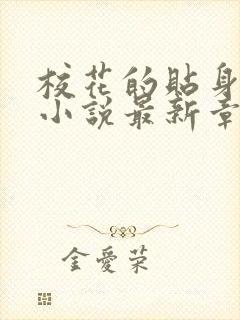 校花的貼身
小說最新章
金愛榮